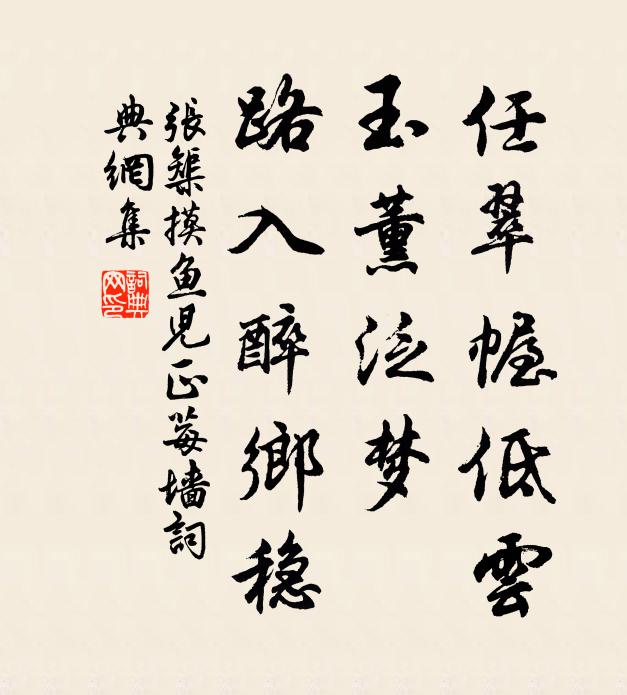 任翠幄低雲
玉薰泛梦
路入醉鄉稳
張榘摸鱼児正莓墙詞
典網集
詞典网印